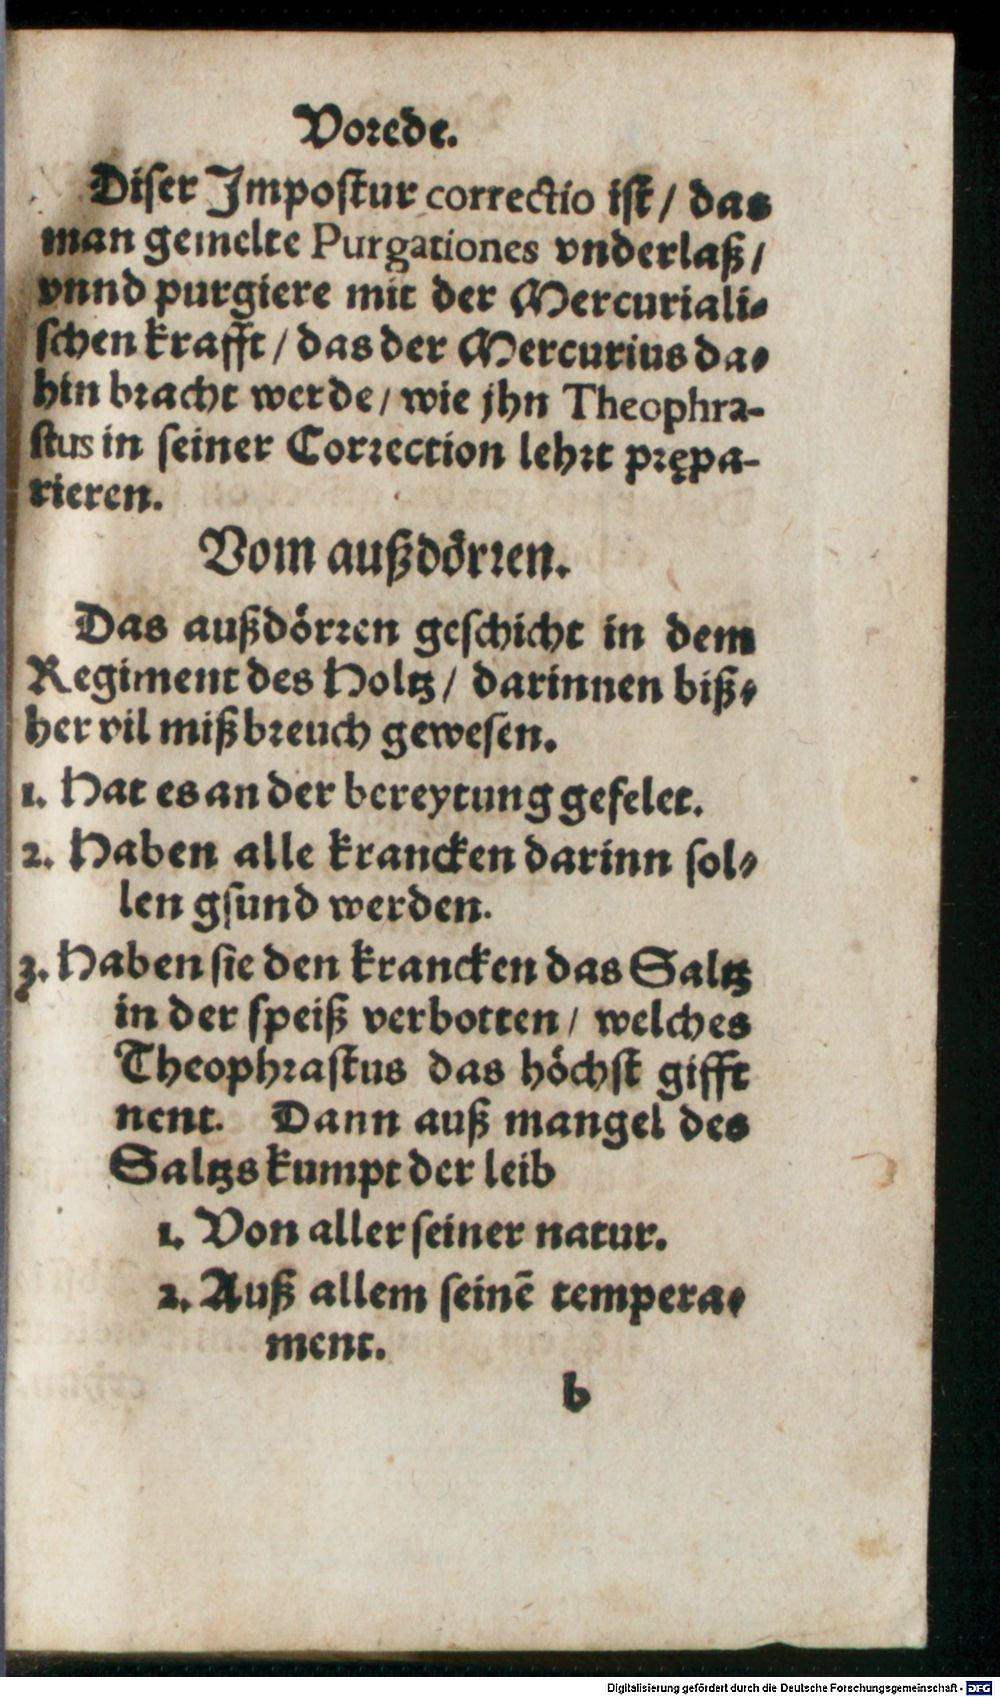 Vorede.
Diser Impostur correctio ist / das
man gemelte Purgationes vnderlaß /
vnnd purgiere mit der Mercuriali-
schen krafft / das der Mercurius da-
hin bracht werde / wie jhn Theophra-
stus in seiner Correction lehrt prępa-
rieren.
Vom außdörren.
Das außdörren geschicht in dem
Regiment des Holtz / darinnen biß-
her vil mißbreuch gewesen.
1. Hat es an der bereytung gefelet.
2. Haben alle krancken darinn sol-
len gsund werden.
3. Haben sie den krancken das Saltz
in der speiß verbotten / welches
Theophrastus das höchst gifft
nent. Dann auß mangel des
Saltzs kumpt der leib
1. Von aller seiner natur.
2. Auß allem seinē tempera-
ment.
b
Digitalisierung gefördert durch die Deutsche Forschungsgemeinschaft - DFG